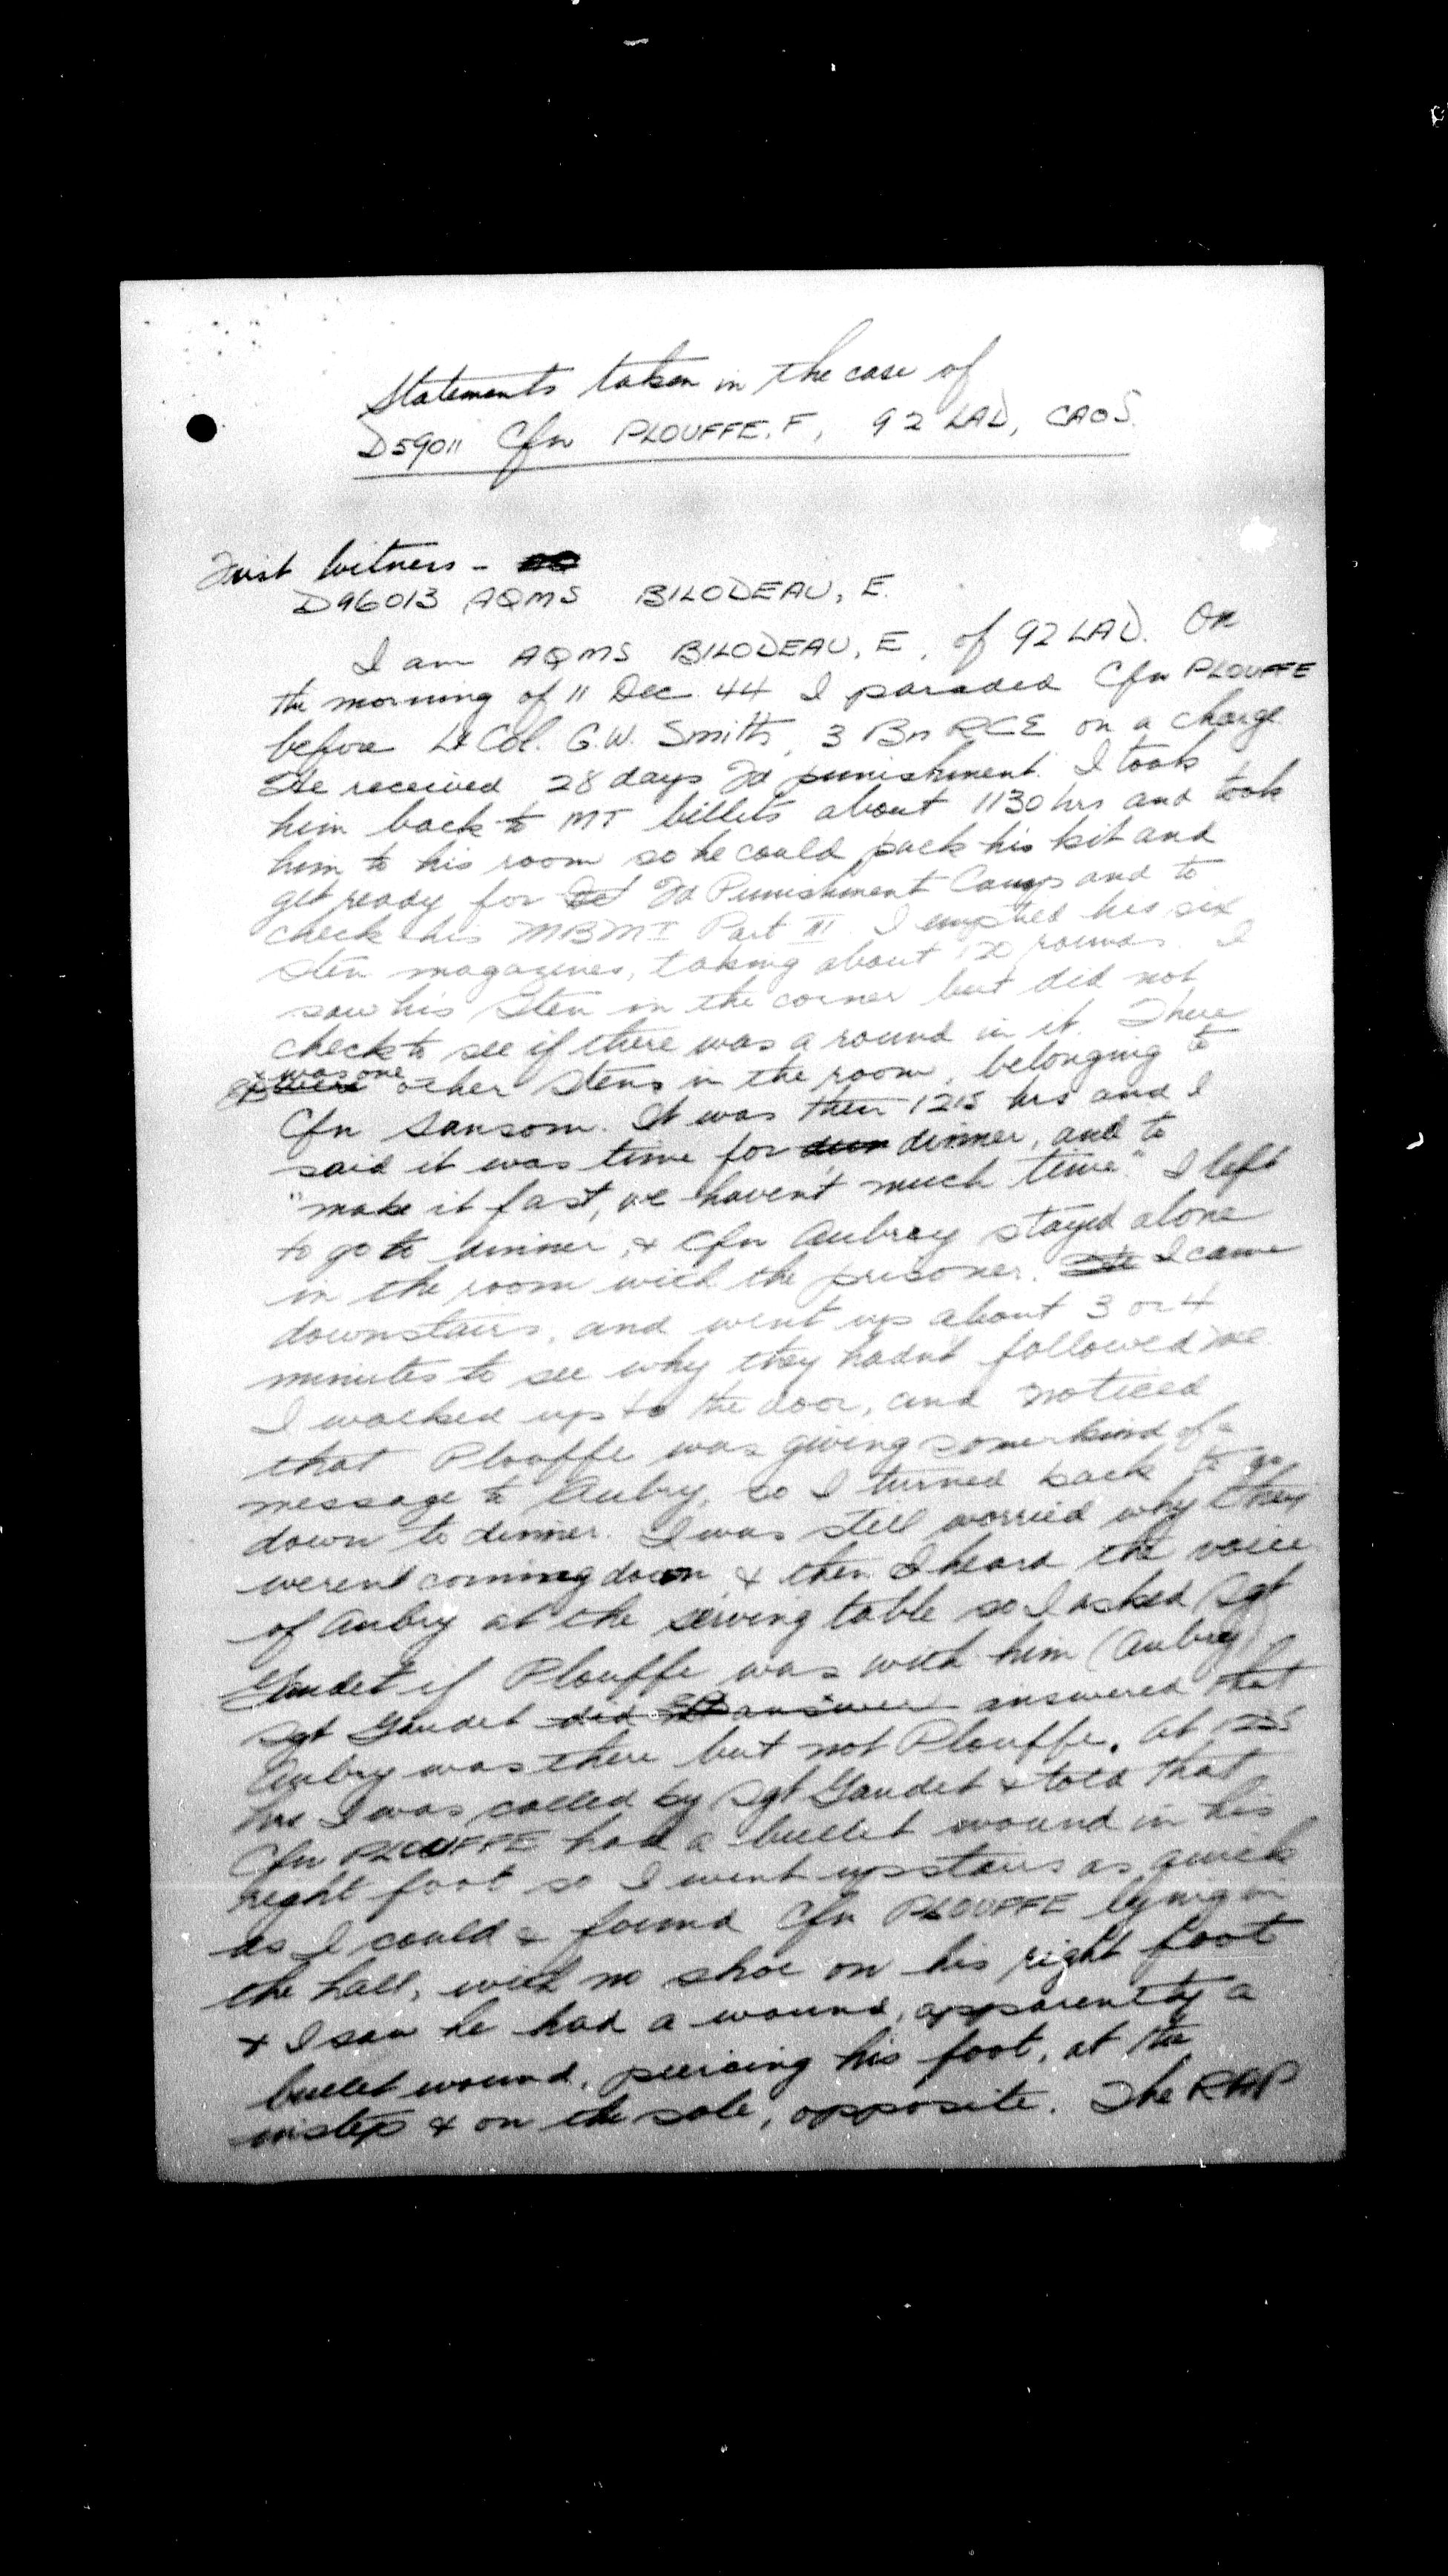 Statements taken in the case of
D59011 Cfn PLOUFFE. F, 92 LAD, CAOS.
First Witness -
D96013 AQMS BILODEAU, E.
I am AQMS BILODEAU, E, of 92 LAD. On
the morning of 11 Dec 44 I paraded Cfn PLOUFFE
before Lt Col. G.W. Smith, 3 Bn RCE on a charge
He received 28 days Fd punishment. I took
him back to MT billets about 1130 hrs and took
him to his room so he could pack his kit and
get ready for Fd Punishment Camp and to
check his Part III. I emptied his six
Sten magazines, taking about 120 rounds. I
saw his Sten in the corner but did not
check to see if there was a round in it. There
was one other Stens in the room, belonging to
Cfn Sansom. It was then 1215 hrs and I
said it was time for dinner, and to
"make it fast, we haven't much time". I left
to go to dinner, & Cfn Aubrey stayed alone
in the room with the prisoner. I came
downstairs, and went up about 3 or 4
minutes to see why they hadn't followed me
I walked up to the door, and noticed
that Plouffe was giving some kind of a
message to Aubry, so I turned back to go
down to dinner. I was still worried why they
weren't coming down & then I heard the voice
of Aubry at the serving table so I asked Sgt
Gaudet if Plouffe was with him (Aubrey)
Sgt Gaudet did answer answered that
Aubry was there but not Plouffe. At
hrs I was called by Sgt Gaudet & told that
Cfn PLOUFFE had a bullet wound in his
right foot so I went upstairs as quick
as I could & found Cfn PLOUFFE lying in
the hall, with no shoe on his right foot
& I saw he had a wound, apparently a
bullet wound, piercing his foot, at the
instep & on the sole, opposite. The RAP